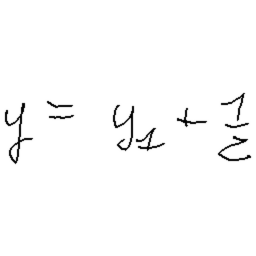 y = y_1 + \frac{1}{2}